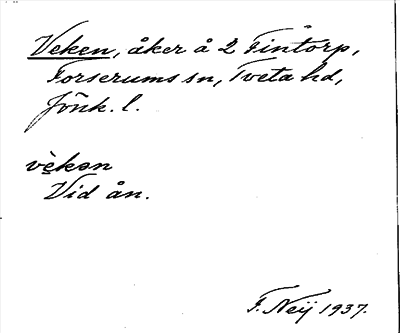 Veken, åker å 2 Fintorp,
Forserums sn, Tveta hd,
Jönk. l.
vèkən
Vid ån.
F. Neij 1937.